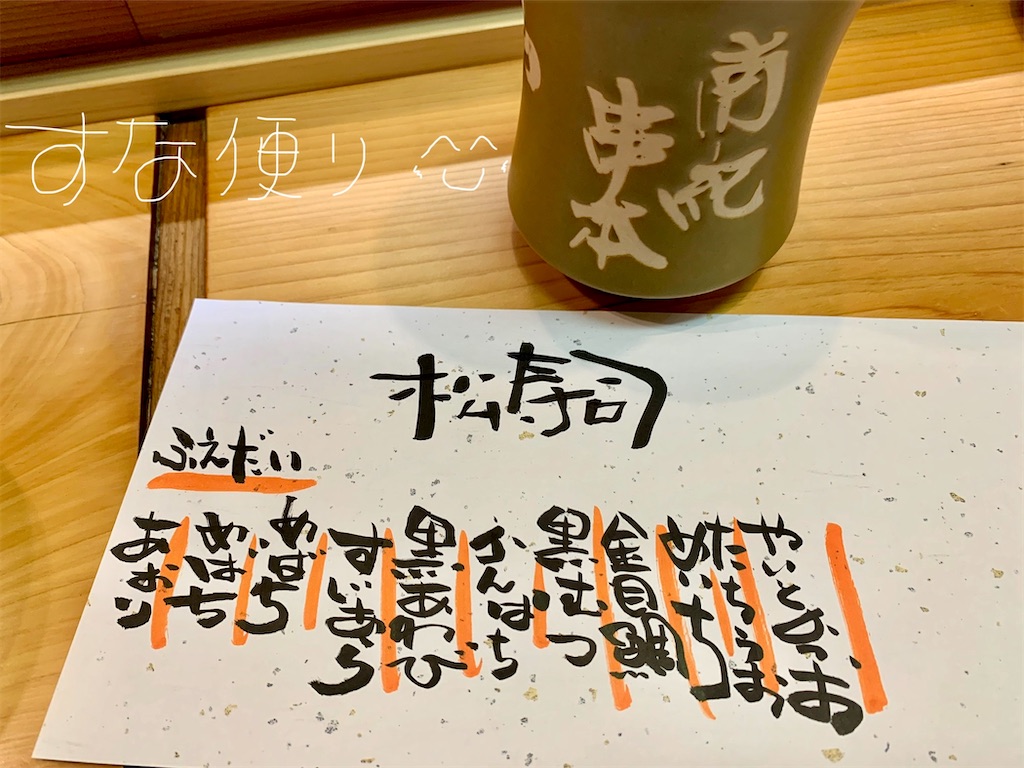 すな便り
南紀
串本
松寿司
やいとがつお
たちうお
めいち
金目鯛
黒むつ
かんぱち
黒あわび
すじあら
めばち
めはち
あおり
ふえだい